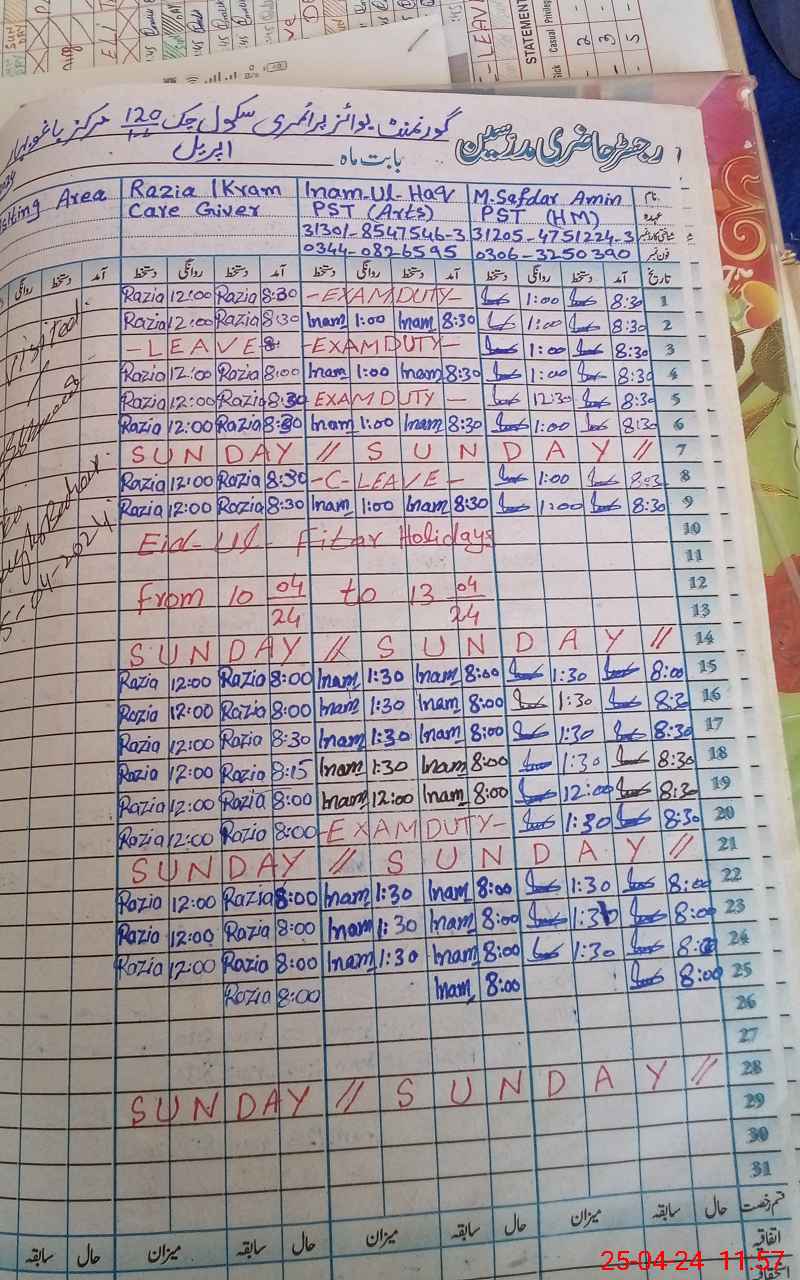 STATEMENT
Sick Casual
LEAVE
رجسٹر حاضری مدرسین
گورنمنٹ بوائز پرائمری سکول چک 120 مرکز
بابت ماہ اپریل
Area Razia Ikram Inam-Ul-Haq M.Safdar Amin نام
Care Giver PST (Arts) PST (HM) عہدہ
31301-8547546-3 31205-4751224-3
0344-0826595 0306-3250390 فون نمبر
روانگی دستخط آمد دستخط روانگی دستخط آمد دستخط روانگی دستخط آمد دستخط روانگی دستخط آمد تاریخ
Razia 12:00 Razia 8:30 -EXAM DUTY- 1:00 8:30 1
Razia 12:00 Razia 8:30 Inam 1:00 Inam 8:30 1:00 8:30 2
-LEAVE- -EXAM DUTY- 1:00 8:30 3
Razia 12:00 Razia 8:00 Inam 1:00 Inam 8:30 1:00 8:30 4
Razia 12:00 Razia 8:30 EXAM DUTY- 12:30 8:30 5
Razia 12:00 Razia 8:30 Inam 1:00 Inam 8:30 1:00 8:30 6
SUNDAY // SUNDAY // 7
Razia 12:00 Razia 8:30 -C-LEAVE- 1:00 8:30 8
Razia 12:00 Razia 8:30 Inam 1:00 Inam 8:30 1:00 8:30 9
Eid-Ul-Fitar Holidays 10
11
from 10 04/24 to 13 04/24 12
13
SUNDAY // SUNDAY // 14
Razia 12:00 Razia 8:00 Inam 1:30 Inam 8:00 1:30 8:00 15
Razia 12:00 Razia 8:00 Inam 1:30 Inam 8:00 1:30 16
Razia 12:00 Razia 8:30 Inam 1:30 Inam 8:00 1:30 8:30 17
Razia 12:00 Razia 8:15 Inam 1:30 Inam 8:00 1:30 8:30 18
Razia 12:00 Razia 8:00 Inam 12:00 Inam 8:00 12:00 8:30 19
Razia 12:00 Razia 8:00 -EXAM DUTY- 1:30 8:30 20
SUNDAY // SUNDAY // 21
Razia 12:00 Razia 8:00 Inam 1:30 Inam 8:00 1:30 8:00 22
Razia 12:00 Razia 8:00 Inam 1:30 Inam 8:00 1:30 8:00 23
Razia 12:00 Razia 8:00 Inam 1:30 Inam 8:00 1:30 8:00 24
Razia 8:00 Inam 8:00 8:00 25
26
27
SUNDAY // SUNDAY // 28
29
30
31
سابقہ حال میزان سابقہ حال میزان سابقہ حال میزان سابقہ حال قسم رخصت
اتفاقیہ
Visited
25-04-24 11:57